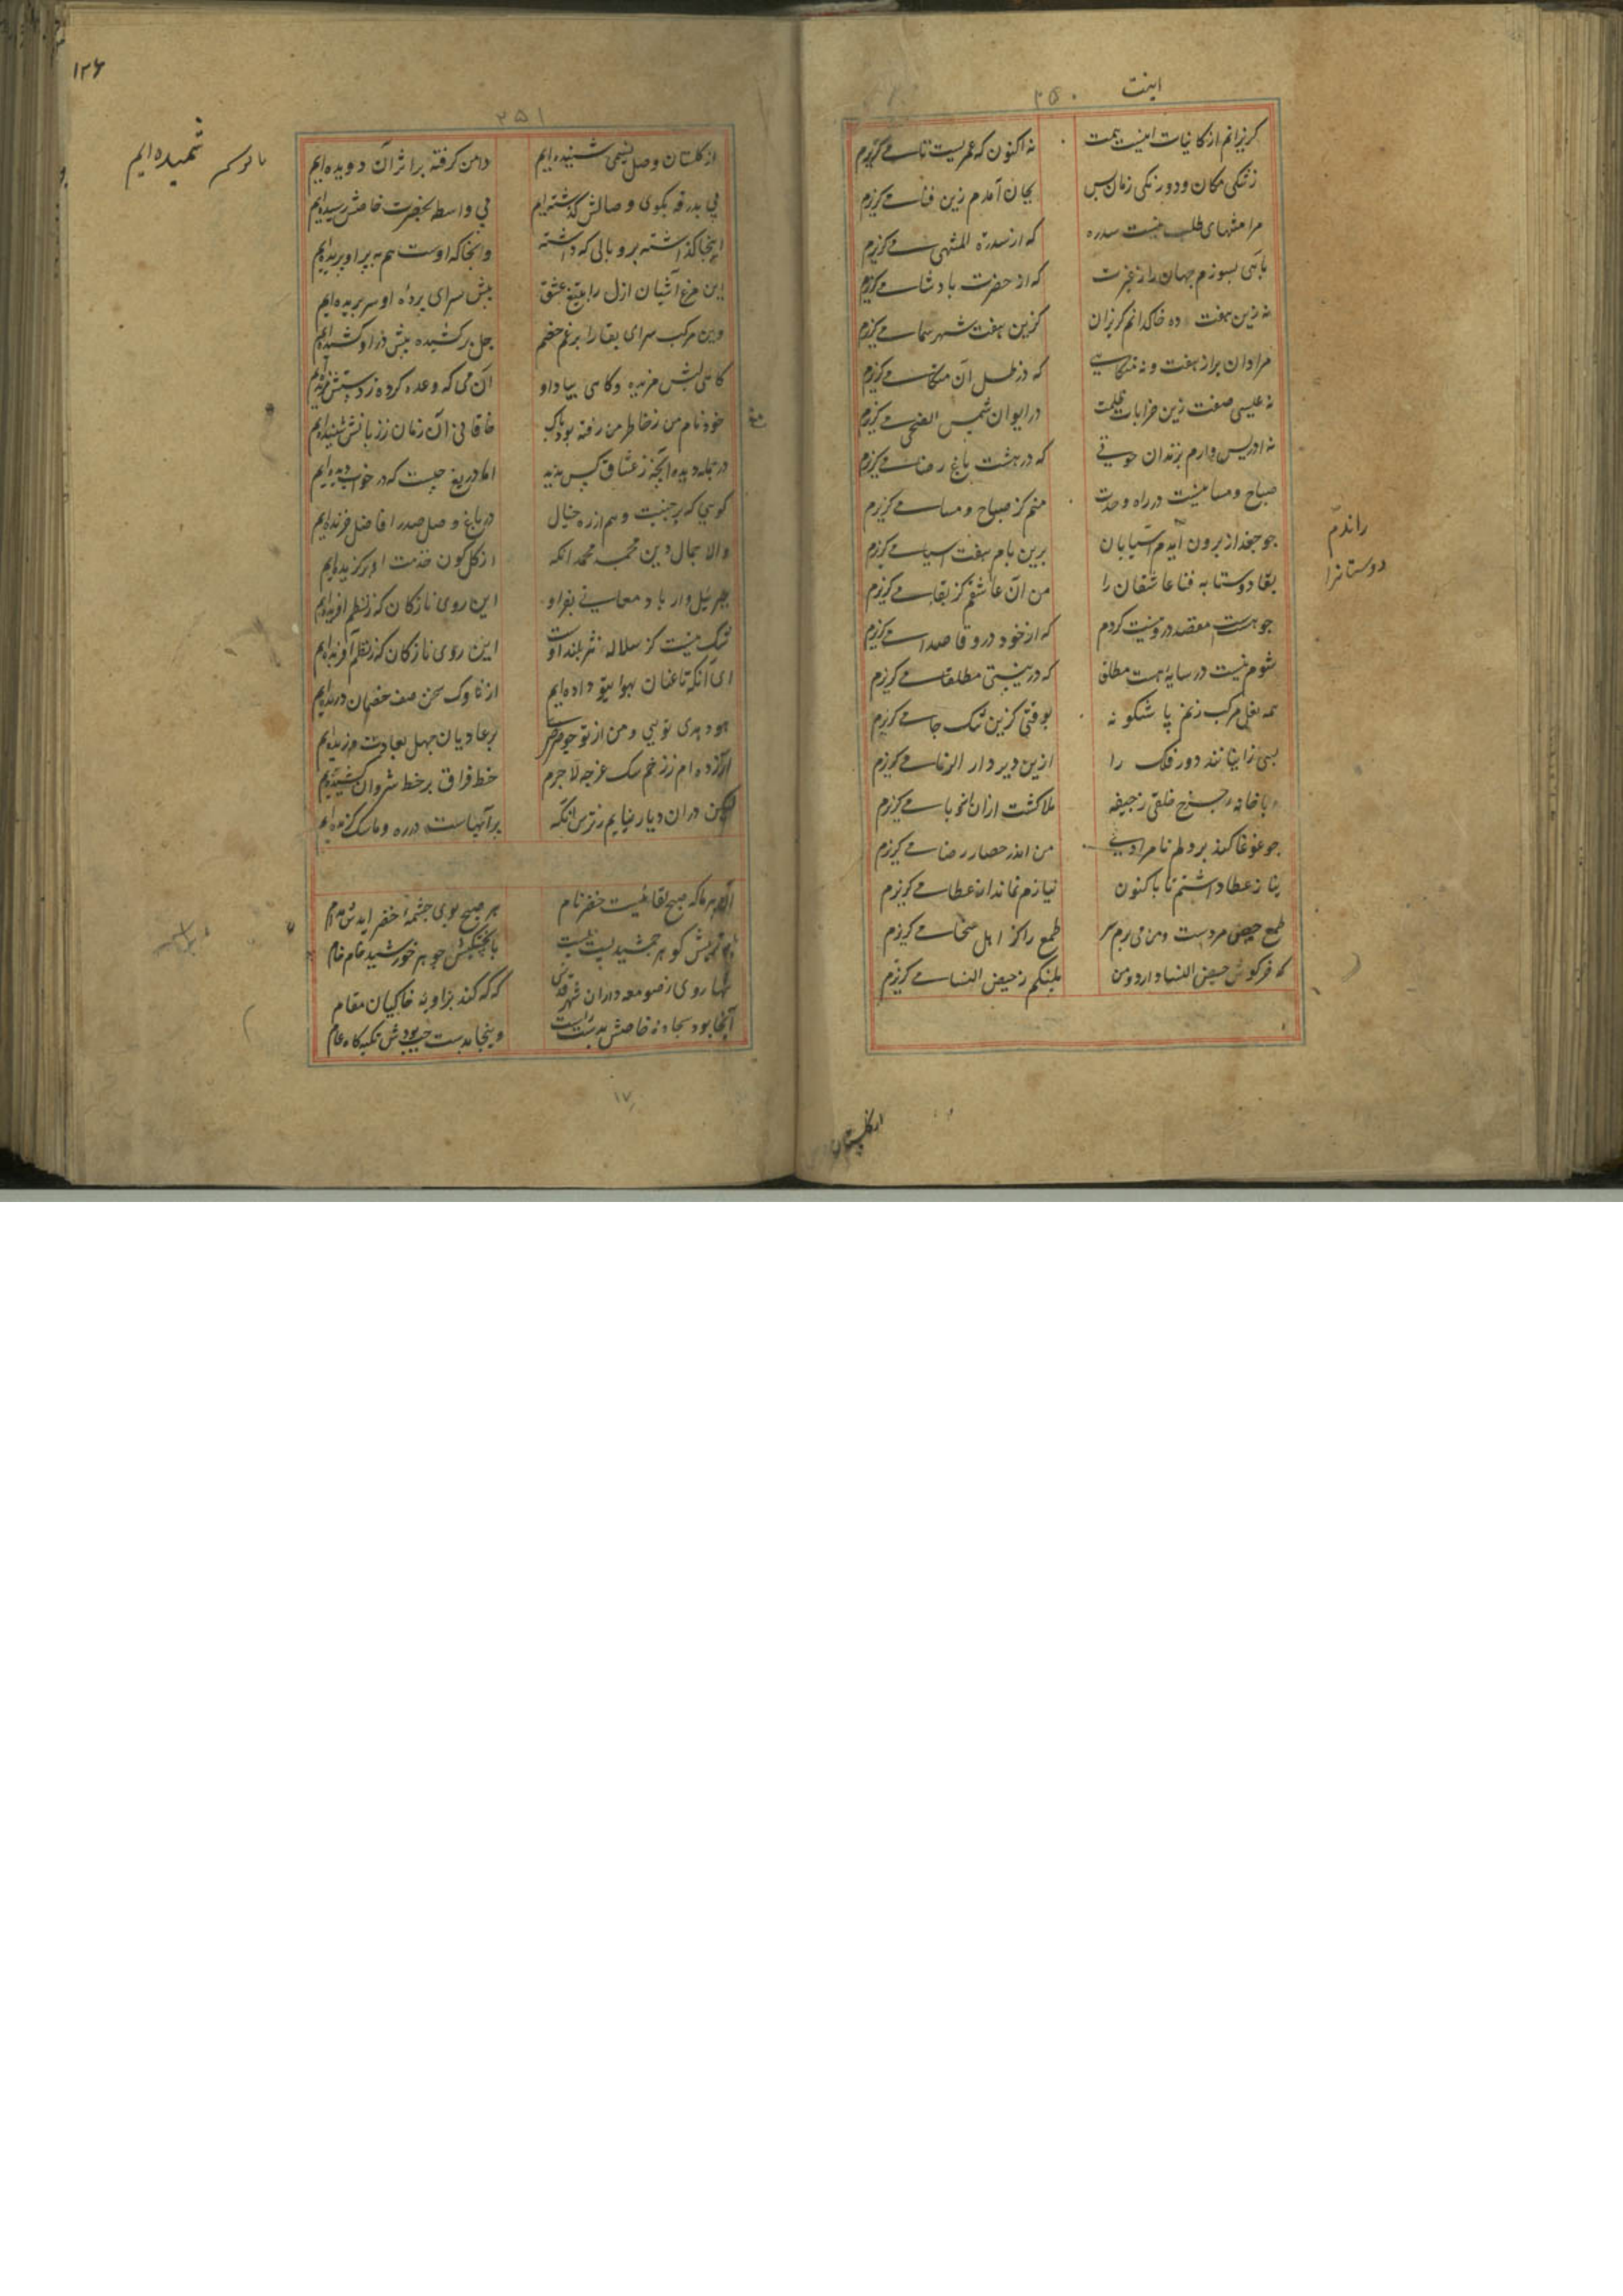 اینت
۲۵۰
گریزانم از کاینات اینت همت نه اکنون که عمریست تا می گریزم
ز تنگی مکان و دورنگی زمان بس بجان آمدم زین فنا می گریزم
مرا منتهای طلب نیست سدره که از سدرة المنتهی می گریزم
بآهی بسوزم جهان را ز غیرت که از حضرت پادشا می گریزم
نه زین هفت ده خاکدانم گریزان کزین هفت شهر سما می گریزم
مرا دان براز هفت و نه متکایی که در ظل آن متکا می گریزم
نه عیسی صفت زین خرابات ظلمت در ایوان شمس الضحی می گریزم
نه ادریس وارم بزندان خوفی که در هشت باغ رضا می گریزم
صباح و مسا نیست در راه وحدت منم کز صباح و مسا می گریزم
چو جغد از برون آیدم آسیابان برین بام هفت آسیا می گریزم
بقا دوستان به فنا عاشقان را من آن عاشقم کز بقا می گریزم
چو هست مقصد درو نیست گردم که از خود درو قاصدا می گریزم
شوم نیست در سایه هست مطلق که در نیستی مطلقا می گریزم
همه نعل مرکب زنم باشگونه بوقتی کزین تنگ جا می گریزم
بسی زانیانند دور فلک را ازین دیر دار الزنا می گریزم
وباخانه چرخ خلقی ز جیفه ملا کشت ازان باوبا می گریزم
چو غوغا کند بر دلم نامرادی من اندر حصار رضا می گریزم
نیاز عطا داشتم تا باکنون نیازم نماند از عطا می گریزم
طمع حیض مردست و من می برم سر طمع را کز اهل سخا می گریزم
که خرگوش حیض النسا دارد و من پلنگم ز حیض النسا می گریزم
راندم
دوستانرا
از گلستان
۱۲۶
۲۵۱
از گلستان وصل نسیمی شنیده ایم دامن گرفته بر اثر آن دویده ایم
بی بدرقه بکوی وصالش گذشته ایم بی واسطه بحضرت خاصش رسیده ایم
اینجا گذاشته پر و بالی که داشته وانجا که اوست هم به پر او پریده ایم
این مرغ آشیان ازل را بتیغ عشق پیش سرای پرده او سر بریده ایم
وین مرکب سرای بقا را برغم خصم جل بر کشیده پیش در او کشیده ایم
گاهی لبش مزیده و گاهی بیاد او آن می که وعده کرده ز دستش مزیده ایم
خود نام من ز خاطر من رفته بود پاک خاقانی آن زمان ز زبانش شنیده ایم
در جمله دیده آنچه ز عشاق کس ندید اما دریغ چیست که در خواب دیده ایم
گویی که بر جنیبت وهم از ره خیال در باغ وصل صدر افاضل خزیده ایم
والا جمال دین محمد محمد آنکه از کل کون خدمت او برگزیده ایم
جبرئیل وار باد معانی بفر او این روی نازکان کز نظم آفریده ایم
شک نیست کز سلاله نثر بلند اوست این روی نازکان کز نظم آفریده ایم
ای آنکه تا عنان بهوا بتو داده ایم از ناوک سخن صف خصمان دریده ایم
هود هدی تویی و من از تو چو صرصر بر عادیان جهل بعادت وزیده ایم
آزرده ام ز زخم سگ غرچه لاجرم خط فراق بر خط شروان کشیده ایم
لیکن دران دیار نیایم ز ترس آنکه پر آبهاست در ره و ما سگ گزیده ایم
آن پیر ما که صبح لقائیست خضر نام هر صبح بوی چشمه خضر آیدش ز کام
با برتریش گوهر جمشید پست پست با پختگیش جوهر خورشید خام خام
تنها روی ز صومعه داران شهر قدس گه گه کند بزاویه خاکیان مقام
آنجا بود سجاده خاصش بدست راست وینجا بدست چپ بودش تکیه گاه عام
شمیده ایم
۱۷